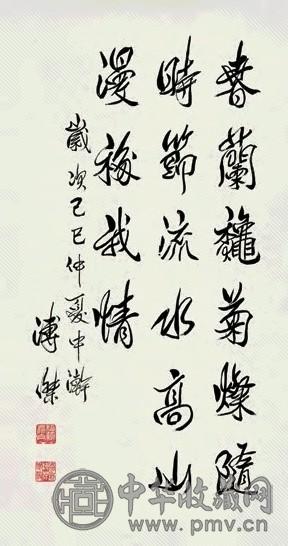 春蘭龝菊燦隨
時節流水高山
漫移我情
歲次己巳仲夏中澣
溥傑
中华收藏网
www.pmv.cn